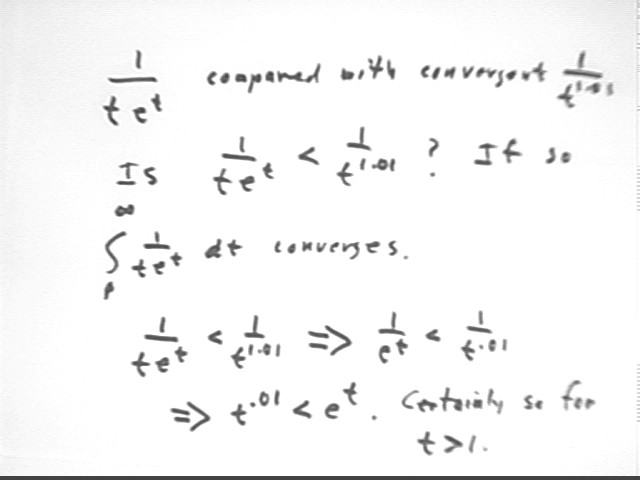 1/(t e^t) compared with convergent 1/t^1.01
Is 1/(t e^t) < 1/t^1.01 ? If so
∫_p^∞ 1/(t e^t) dt converges.
1/(t e^t) < 1/t^1.01 => 1/e^t < 1/t^.01
=> t^.01 < e^t. Certainly so for
t > 1.